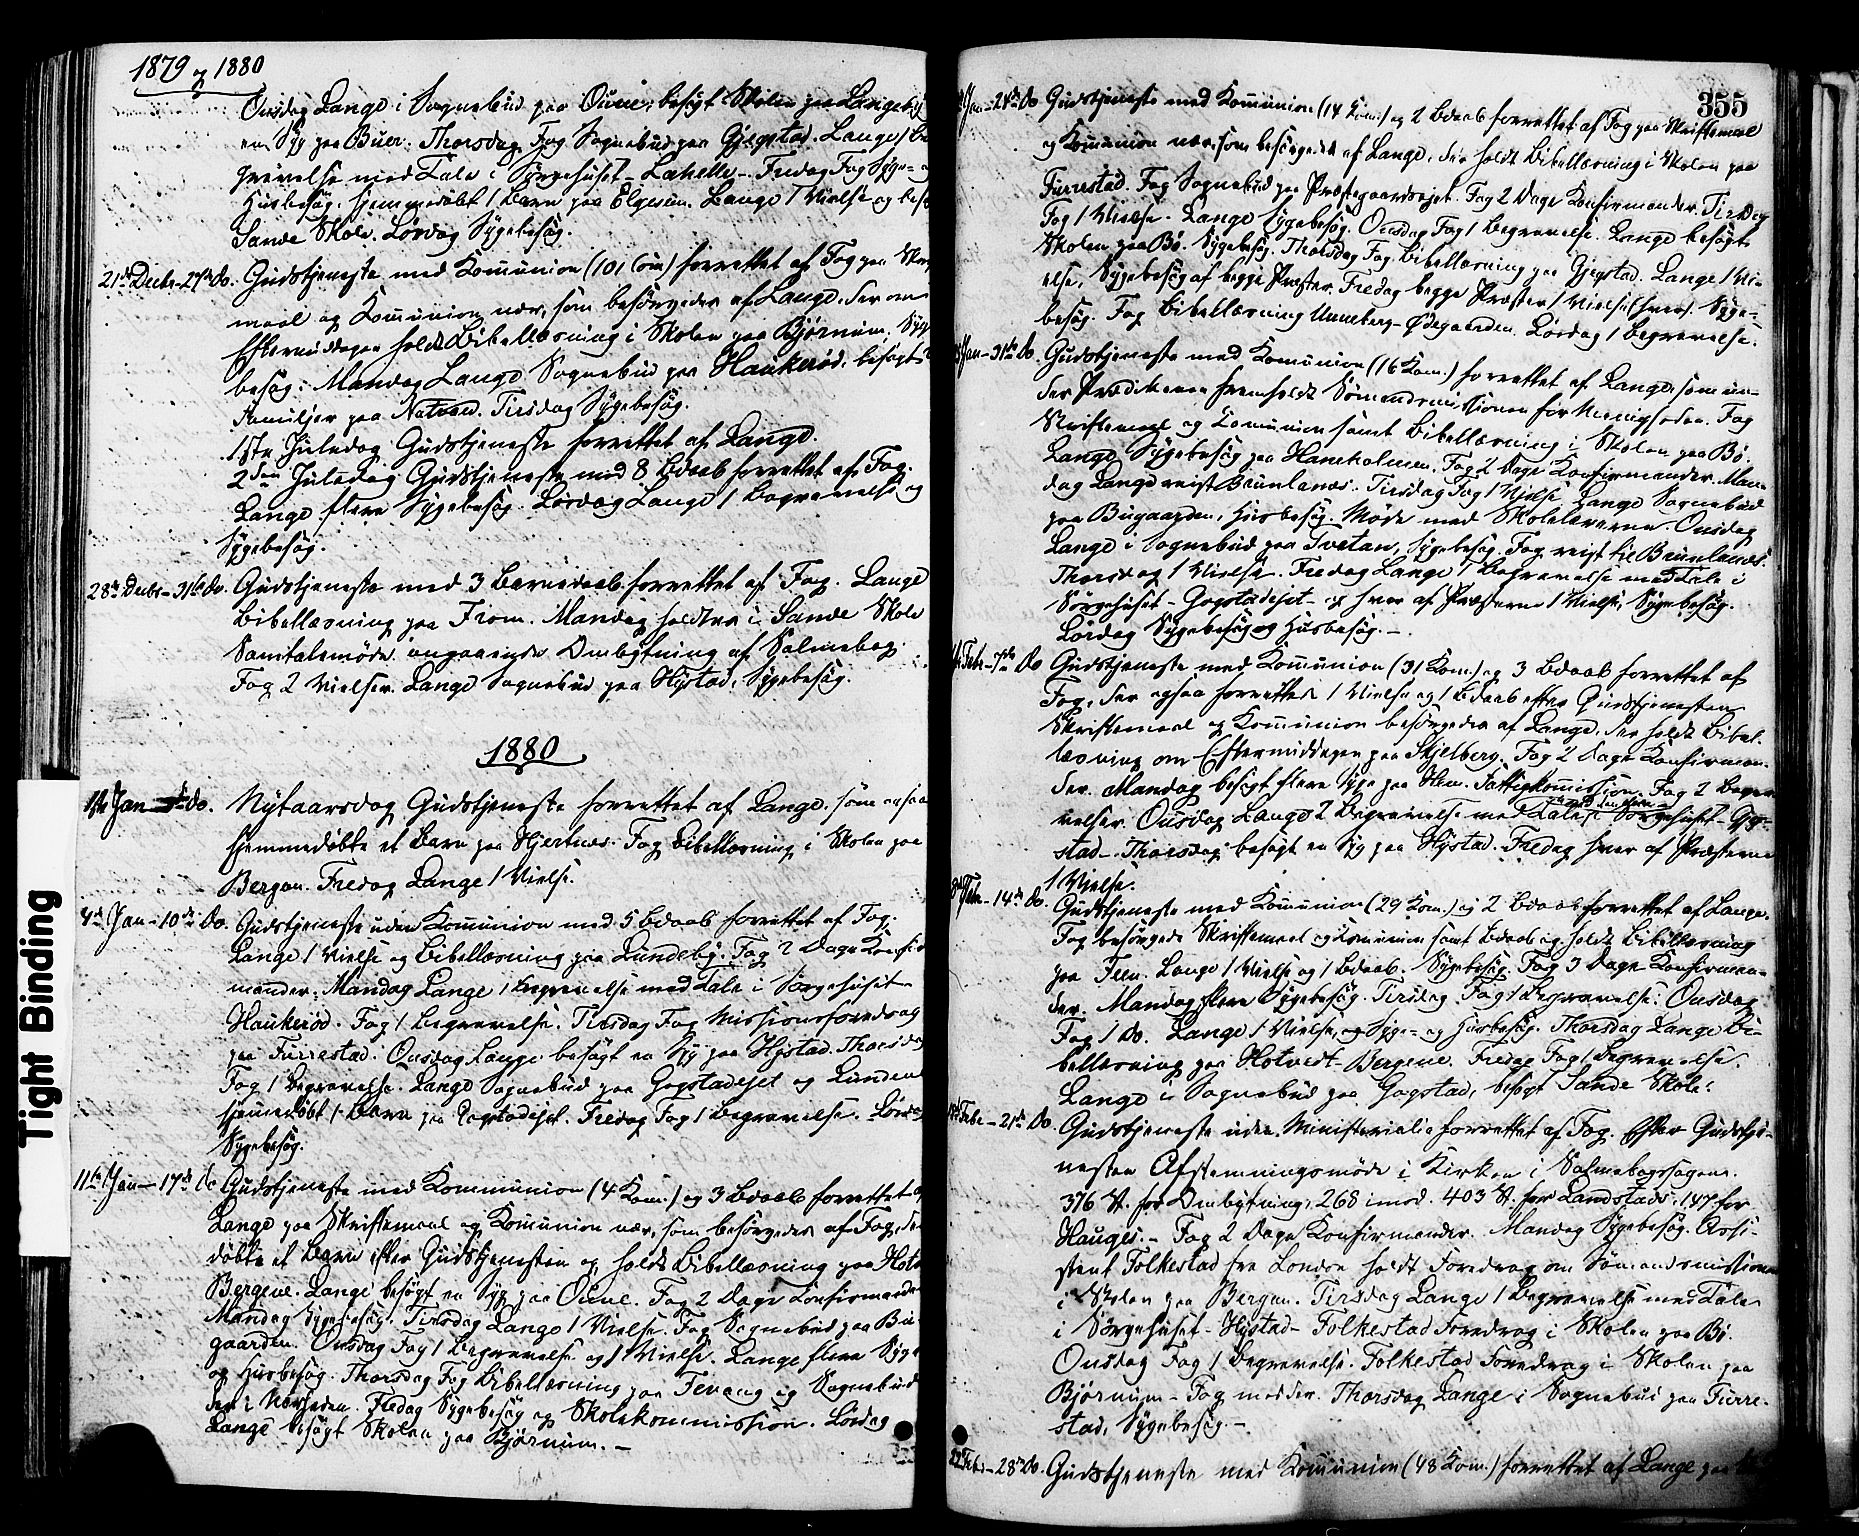 1879 og 1880
Onsdag Lange i Sognebud paa Oune, besøgt Skolen paa
en Syg paa Buer. Thorsdag Fog Sognebud paa Gjegstad. Lange 1 Be
gravelse med Tale i Sørgehuset - Lahelle -. Fredag Fog Syge- og
Husbesøg. hjemmedøbt 1 Barn paa Elgesem. Lange 1 Vielse og besøgt
Sande Skole. Lørdag Sygebesøg.
21de Decbr-27de do. Gudstjeneste med Kommunion (101 Com) forrettet af Fog paa Skrifte
maal og Kommunion nær, som besørgedes af Lange, der om
Eftermiddagen holdt Bibellæsning i Skolen paa Bjørnum. Syge
besøg. Mandag Lange Sognebud paa Haukerød. besøgt
Familjer paa Natvad. Tirsdag Sygebesøg.
1ste Juledag Gudstjeneste forrettet af Lange.
2den Juledag Gudstjeneste med 8 Bdaab forrettet af Fog.
Lange flere Sygebesøg. Lørdag Lange 1 Begravelse og
Sygebesøg.
28de Decbr-31te do. Gudstjeneste med 3 Barnedaab forrettet af Fog. Lange
Bibellæsning paa From. Mandag holdtes i Sande Skole
Samtalemøde angaaende Ombytning af Salmebog
Fog 2 Vielser. Lange Sognebud paa Hystad, Sygebesøg.
1880
1ste Jan do. Nytaarsdag Gudstjeneste forrettet af Lange, som ogsaa
hjemmedøbte et Barn paa Hjertnes. Fog Bibellæsning i Skolen paa
Bergan. Fredag Lange 1 Vielse.
4de Jan-10de do. Gudstjeneste uden Kommunion med 5 Bdaab forrettet af Fog.
Lange 1 Vielse og Bibellæsning paa Lundeby. Fog 2 Dage Konfir
mander. Mandag Lange 1 Begravelse med Tale i Sørgehuset
Haukerød. Fog 1 Begravelse. Tirsdag Fog Missionsforedrag
paa Furrestad. Onsdag Lange besøgt en Syg paa Hystad. Thorsdag
Fog 1 Begravelse. Lange Sognebud paa Gogstadejet og Lunden
hjemmedøbt 1 Barn paa Gogstadejet. Fredag Fog 1 Begravelse. Lørdag
Sygebesøg.
11te Jan-17de do Gudstjeneste med Kommunion (4 Kom.) og 3 Bdaab forrettet af
Lange paa Skriftemaal og Kommunion nær, som besørgedes af Fog, der
døbte et Barn efter Gudstjenesten og holdt Bibellæsning paa
Bergene. Lange besøgt en Syg paa Oune. Fog 2 Dage Konfirmander
Mandag Sygebesøg. Tirsdag Lange 1 Vielse. Fog Sognebud paa Bu-
gaarden. Onsdag Fog 1 Begravelse og 1 Vielse. Lange flere Syge
og Husbesøg. Thorsdag Fog Bibellæsning paa Tevang og Sognebud
der i Nærheden. Fredag Sygebesøg og Skolekommission. Lørdag
Lange besøgt Skolen paa Bjørnum. -
355
Jan-24de do Gudstjeneste med Kommunion (14 Kom.) og 2 Bdaab forrettet af Fog paa Skriftemaal
og Kommunion nær, som besørgedes af Lange, der holdt Bibellæsning i Skolen paa
Furrestad. Fog Sognebud paa Præstegaardsejet. Fog 2 Dage Konfirmander. Tirsdag
Fog 1 Vielse. Lange Sygebesøg. Onsdag Fog 1 Begravelse. Lange besøgt
Skolen paa Bø. Sygebesøg. Thorsdag Fog Bibellæsning paa Gjegstad. Lange 1 Vi-
else, Sygebesøg af begge Præster. Fredag begge Præster 1 Vielse (hver). Syge-
besøg. Fog Bibellæsning Unneberg-Ødegaarden. Lørdag 1 Begravelse.
Jan-31te do Gudstjeneste med Kommunion (16 Kom.) forrettet af Lange, som un-
der Prædikenen fremholdt Sømandsmissionen for Menigheden. Fog
Skriftemaal og Kommunion samt Bibellæsning i Skolen paa Bø.
Lange Sygebesøg paa Haneholmen. Fog 2 Dage Konfirmander. Man-
dag Lange reist Brunlanæs. Tirsdag Fog 1 Vielse. Lange Sognebud
paa Bugaarden, Husbesøg. Møde med Skolelærerne. Onsdag
Lange i Sognebud paa Tvetan, Sygebesøg. Fog reist til Brunlanæs.
Thorsdag 1 Vielse. Fredag Lange 1 Begravelse med Tale i
Sørgehuset - Gogstadejet - og hver af Præsterne 1 Vielse, Sygebesøg.
Lørdag Sygebesøg og Husbesøg. -
Febr-7de do Gudstjeneste med Kommunion (31 Kom.) og 3 Bdaab forrettet af
Fog, der ogsaa forrettede 1 Vielse og 1 Bdaab efter Gudstjenesten
Skriftemaal og Kommunion besørgedes af Lange, der holdt Bibel-
læsning om Eftermiddagen paa Skjelberg. Fog 2 Dage Konfirman-
der. Mandag besøgt flere Syge paa Hem. Fattigkommission. Fog 2 Begra
velser. Onsdag Lange 2 Begravelse med Tale i Sørgehuset - Gjeg-
stad-. Thorsdag besøgt en Syg paa Hystad. Fredag hver af Præsterne
1 Vielse.
Febr-14de do. Gudstjeneste med Kommunion (29 Kom.) og 2 Bdaab forrettet af Lange.
Fog besørgede Skriftemaal og Kommunion samt Bdaab og holdt Bibellæsning
paa Feen. Lange 1 Vielse og 1 Bdaab. Sygebesøg. Fog 3 Dage Konfirman-
der. Mandag flere Sygebesøg. Tirsdag Fog 1 Begravelse. Onsdag
Fog 1 do. Lange 1 Vielse og Syge- og Husbesøg. Thorsdag Lange Bi-
bellæsning paa Hotvedt-Bergene. Fredag Fog 1 Begravelse.
Lange i Sognebud paa Gogstad, besøgt Sande Skole.
Febr-21de do. Gudstjeneste uden Ministerialia forrettet af Fog. Efter Gudstje-
nesten Afstemningsmøde i Kirken i Salmebogssagen.
376 St. for Ombytning, 268 imod. 403 St. for Landstads. 147 for
Hauges. - Fog 2 Dage Konfirmander. Mandag Sygebesøg. Assi-
stent Folkestad fra London holdt Foredrag om Sømandsmissionen
i Skolen paa Bergan. Tirsdag Lange 1 Begravelse med Tale
i Sørgehuset - Hystad - Folkestad Foredrag i Skolen paa Bø.
Onsdag Fog 1 Begravelse. Folkestad Foredrag i Skolen paa
Bjørnum - Fog med der. Thorsdag Lange i Sognebud paa Furre-
stad, Sygebesøg. -
22 Febr-28de do. Gudstjeneste med Kommunion (48 Kom.) forrettet af Lange paa
Tight Binding